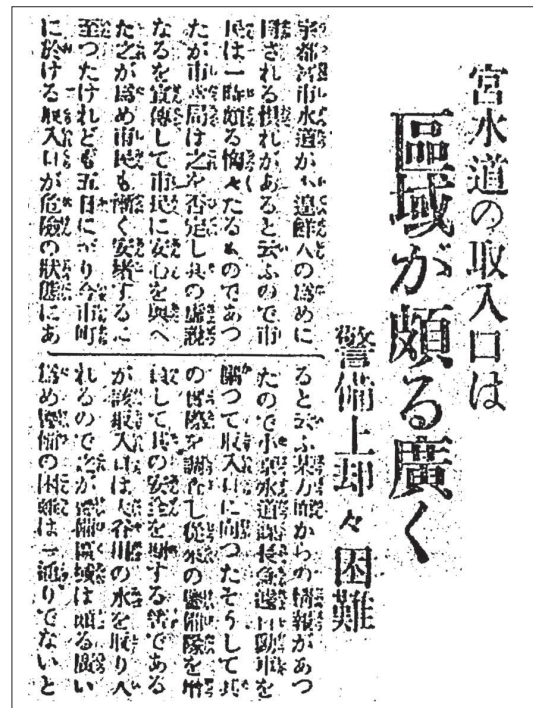 宮水道の取入口は
區域が頗る廣く
警備上却々困難
宇都宮市水道が不逞鮮人の爲めに
される惧れがあると云ふので市
民は一時頗る恟々たるものであつ
たが市當局は之を否定し其の虚説
なるを宣傳して市民に安心を與へ
た之が爲め市民も漸く安緒するに
至つたけれども五日に至り今市町
に於ける取入口が危險の狀態にあ
ると云ふ某方面からの情報があつ
たので小泉水道課長急遽自動車を
驅つて取入口に向つたそうして其
の實際を調査し從來の警備隊を增
員して其の安全を期する筈である
が該取入口は大谷川の水を取り入
れるので之が警備區域は頗る廣い
爲め警備の困難は一通りでないと